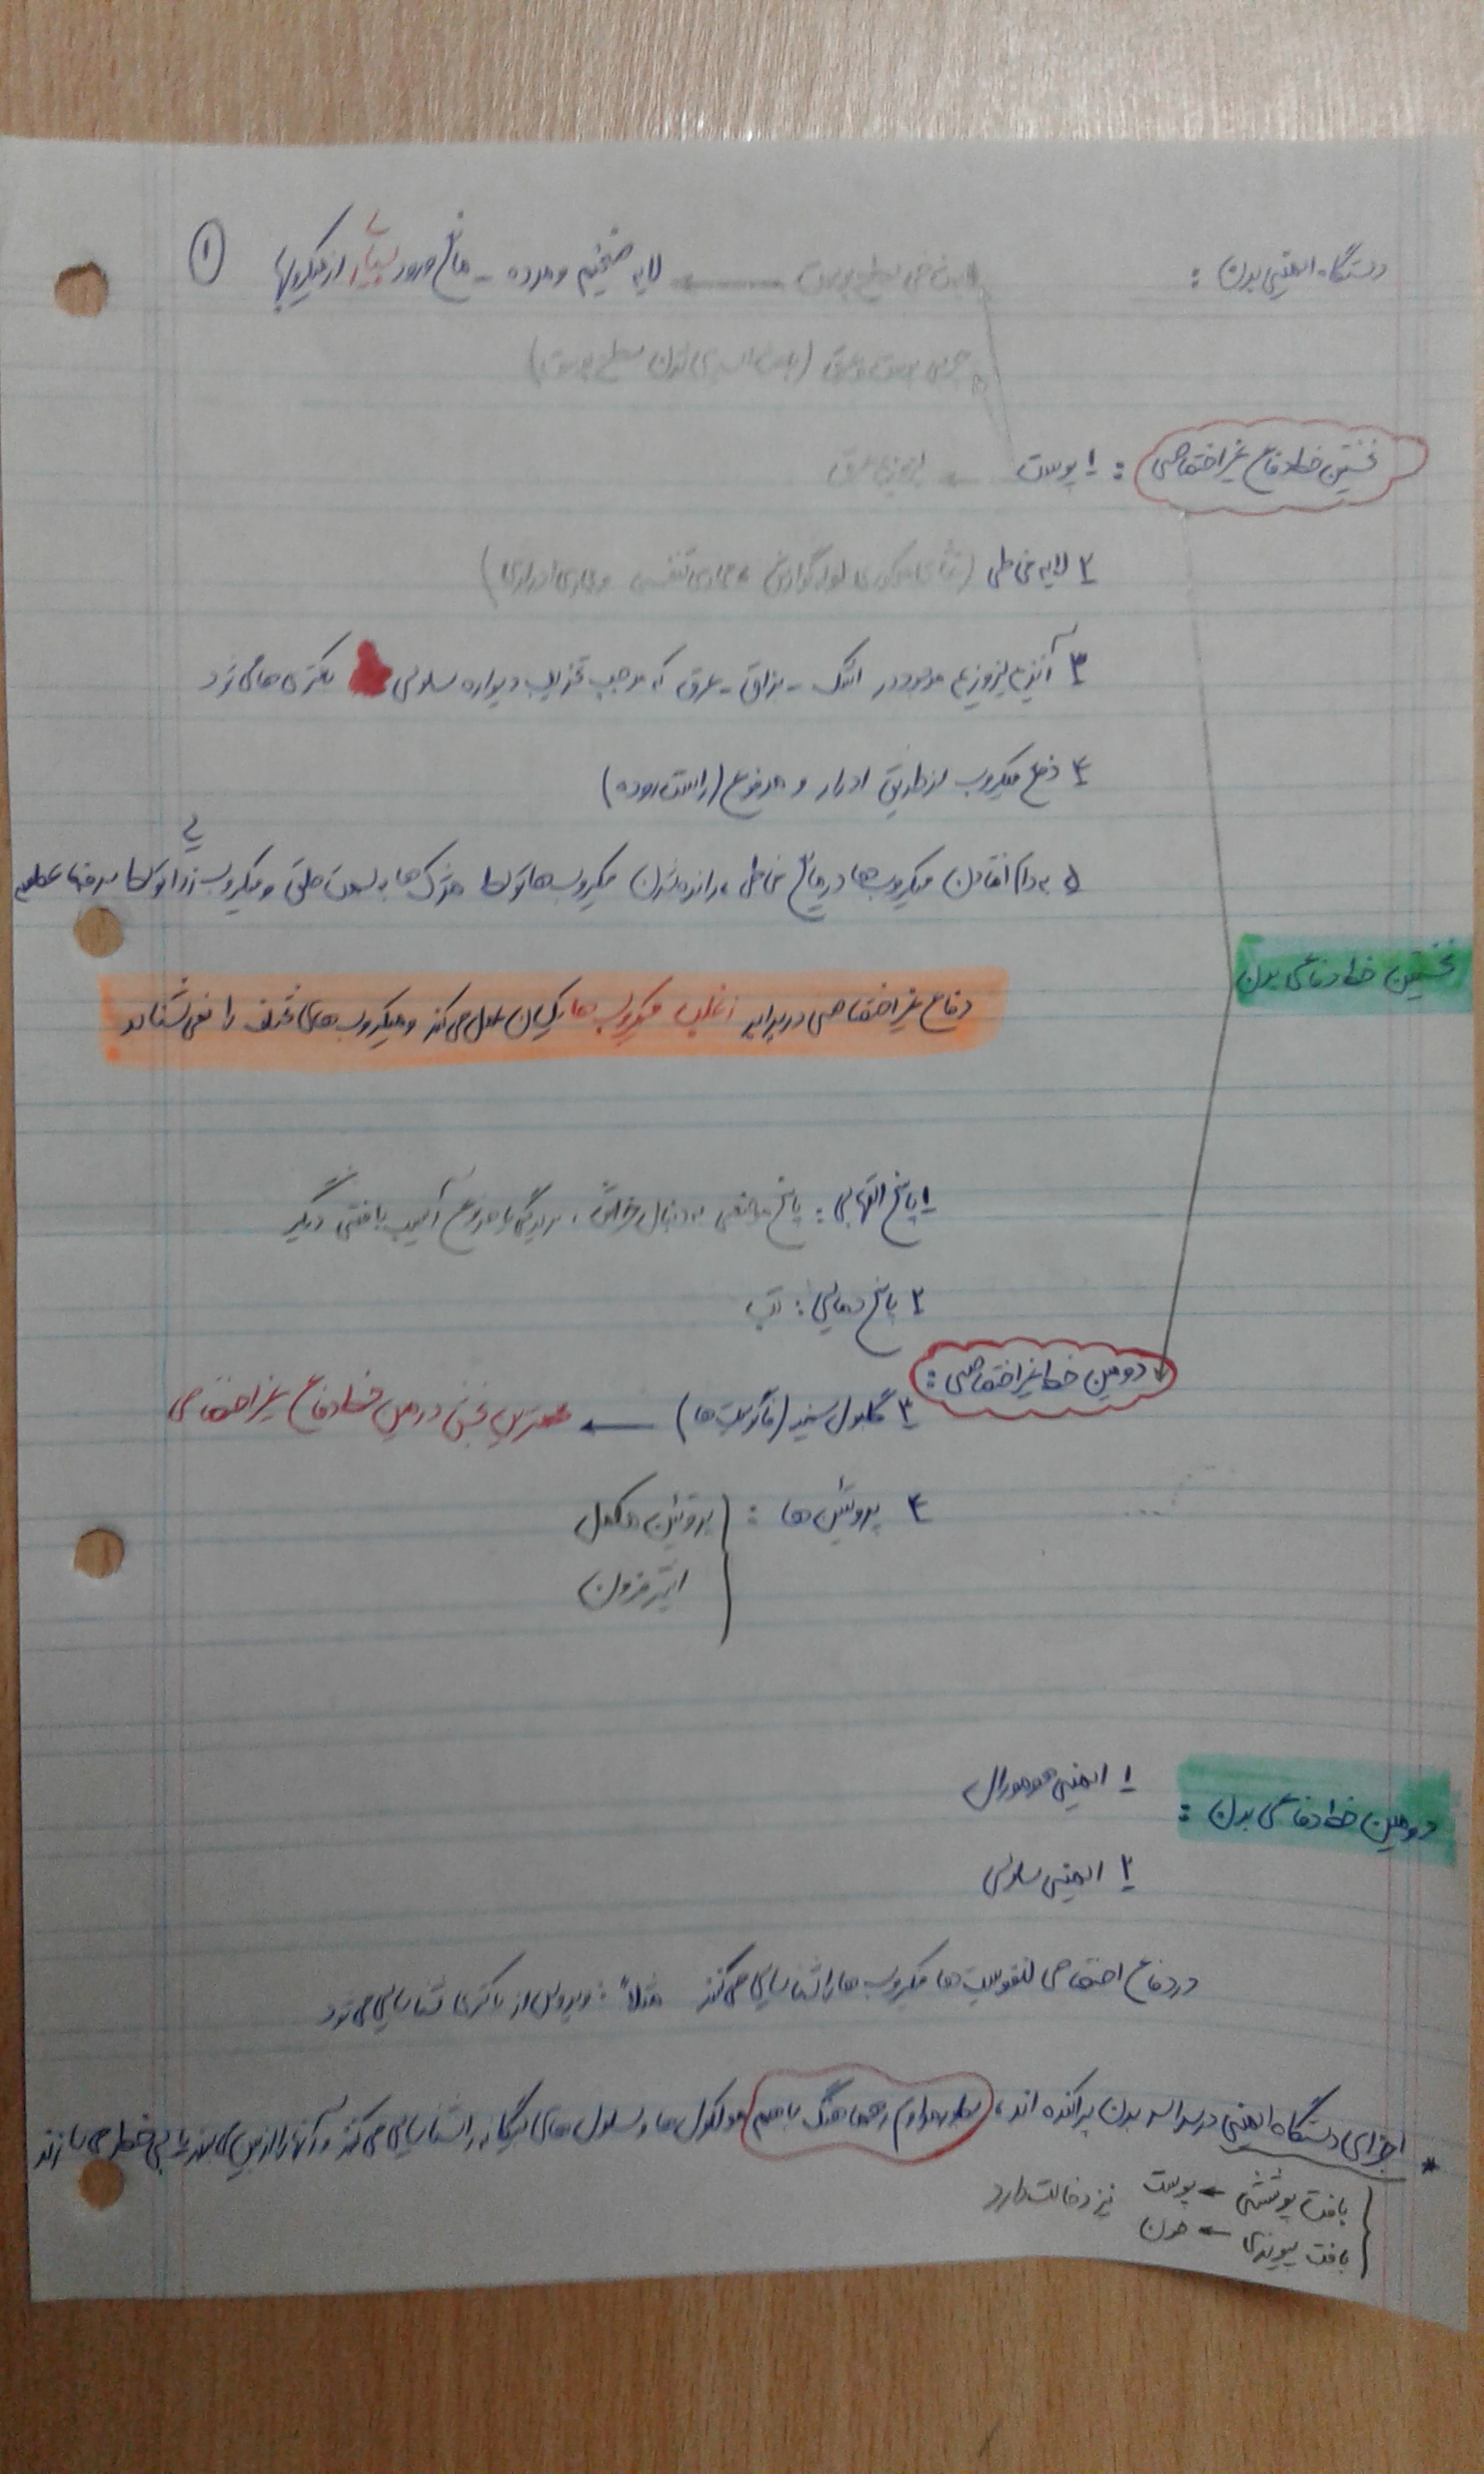 دستگاه ایمنی بدن :
لایه شاخی سطح پوست ← لایه ضخیم و مرده - مانع ورود بسیاری از میکروبها
۱
چربی پوست و عرق (باعث اسیدی شدن سطح پوست)
نخستین خط دفاع غیر اختصاصی : ۱ پوست ← لیزوزیم عرق
۲ لایه مخاطی (لوله گوارش مجاری تنفسی و مجاری ادراری)
۳ آنزیم لیزوزیم موجود در اشک - بزاق - عرق که موجب تخریب دیواره سلولی باکتری ها می شود
۴ دفع میکروب از طریق ادرار و مدفوع (راست روده)
۵ به دام افتادن میکروب ها در مایع مخاطی، رانده شدن میکروب ها توسط مژک ها به سمت حلق و میکروب زدایی توسط سرفه، عطسه
نخستین خط دفاعی بدن
دفاع غیر اختصاصی در برابر اغلب میکروب ها یکسان عمل می کند و میکروب های مختلف را نمی شناسد
۱ پاسخ التهابی : پاسخ موضعی به دنبال خراش، بریدگی یا هر نوع آسیب بافتی دیگر
۲ پاسخ دمایی : تب
دومین خط غیر اختصاصی :
۳ گلبول سفید (فاگوسیت ها) ← مهمترین بخش دومین خط دفاع غیر اختصاصی
۴ پروتئین ها : پروتئین مکمل
اینترفرون
دومین خط دفاعی بدن :
۱ ایمنی هومورال
۲ ایمنی سلولی
در دفاع اختصاصی لنفوسیت ها میکروب ها را شناسایی می کنند مثلاً : ویروس از باکتری شناسایی می شود
* اجزای دستگاه ایمنی در سراسر بدن پراکنده اند، بطور مداوم و هماهنگ با هم مولکول ها و سلول های بیگانه را شناسایی می کنند و آنها را از بین می برند یا بی خطر می سازند
بافت پوششی ← پوست نیز دخالت دارد
بافت پیوندی ← خون